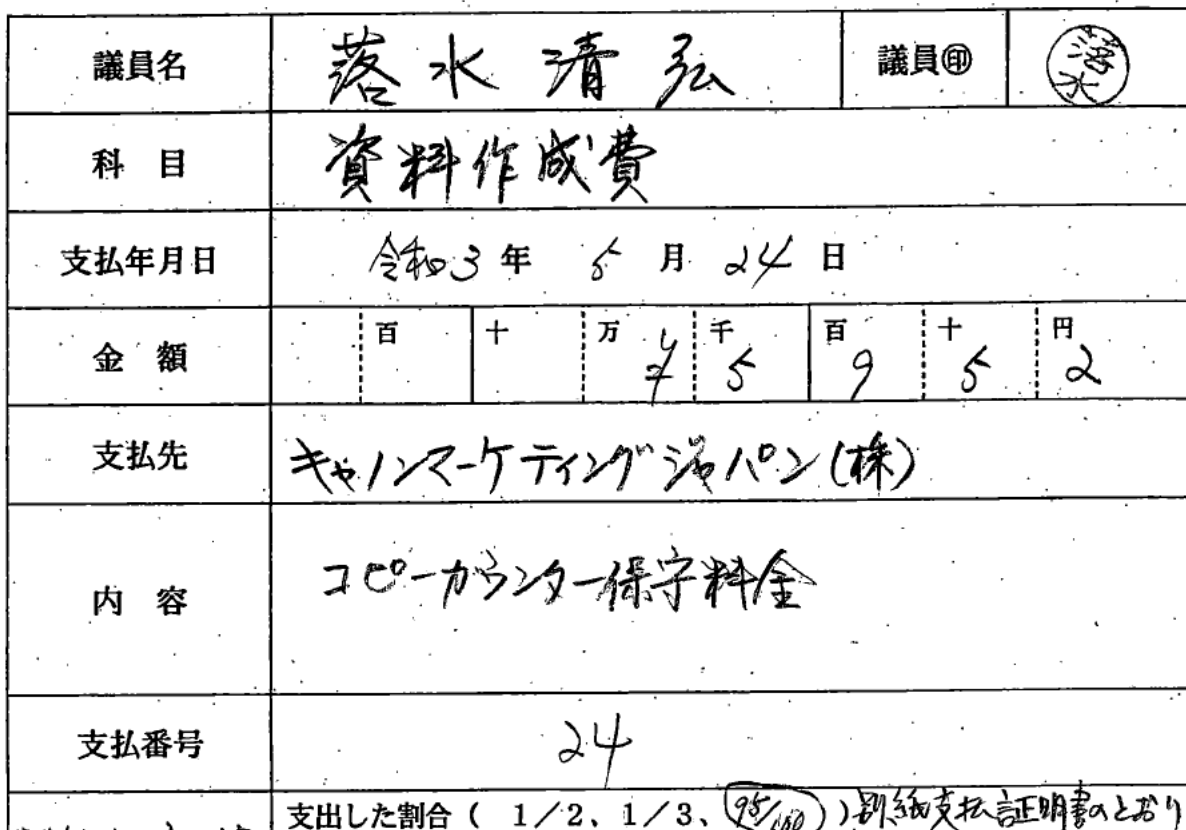 議員名 落水清弘 議員㊞ 落水
科目 資料作成費
支払年月日 令和3年 5月 24日
金額 百 十 万 ¥ 千 5 百 9 十 5 円 2
支払先 キャノンマーケティングジャパン(株)
内容 コピーカウンター保守料金
支払番号 24
支出した割合( 1/2、1/3、95/100 )別紙支払証明書のとおり